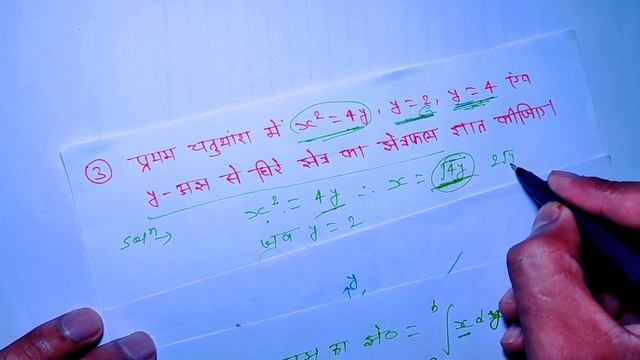 ③ प्रथम चतुर्थांश में x² = 4y, y = 2, y = 4 एवं
y-अक्ष से घिरे क्षेत्र का क्षेत्रफल ज्ञात कीजिए।
Solⁿ→ x² = 4y ∴ x = √4y 2√y
जब y = 2
y
का क्षे० = ∫ᵇ x dy